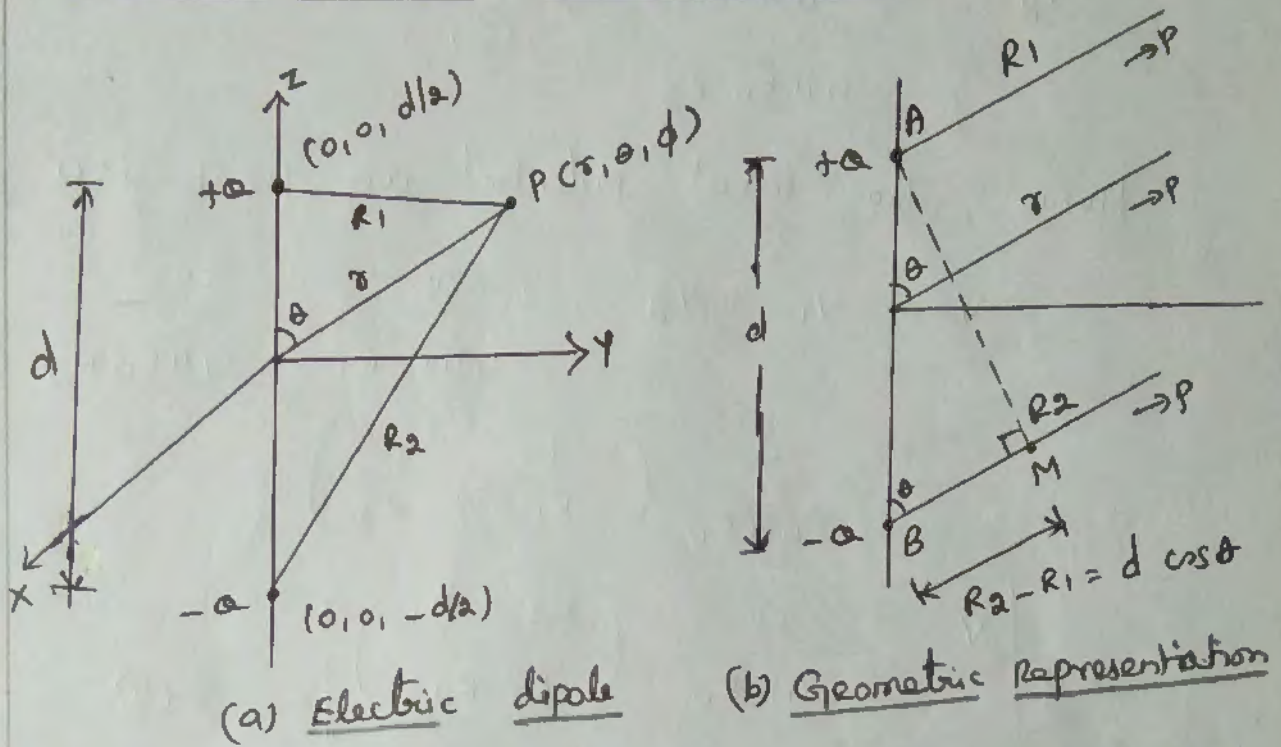 Z
(0, 0, d/2)
+Q
P (r, θ, ϕ)
R1
r
θ
d
Y
R2
X
-Q
(0, 0, -d/2)
(a) Electric dipole
R1
→P
A
+Q
r
→P
θ
d
R2
→P
θ
M
-Q
B
R2-R1 = d cosθ
(b) Geometric Representation